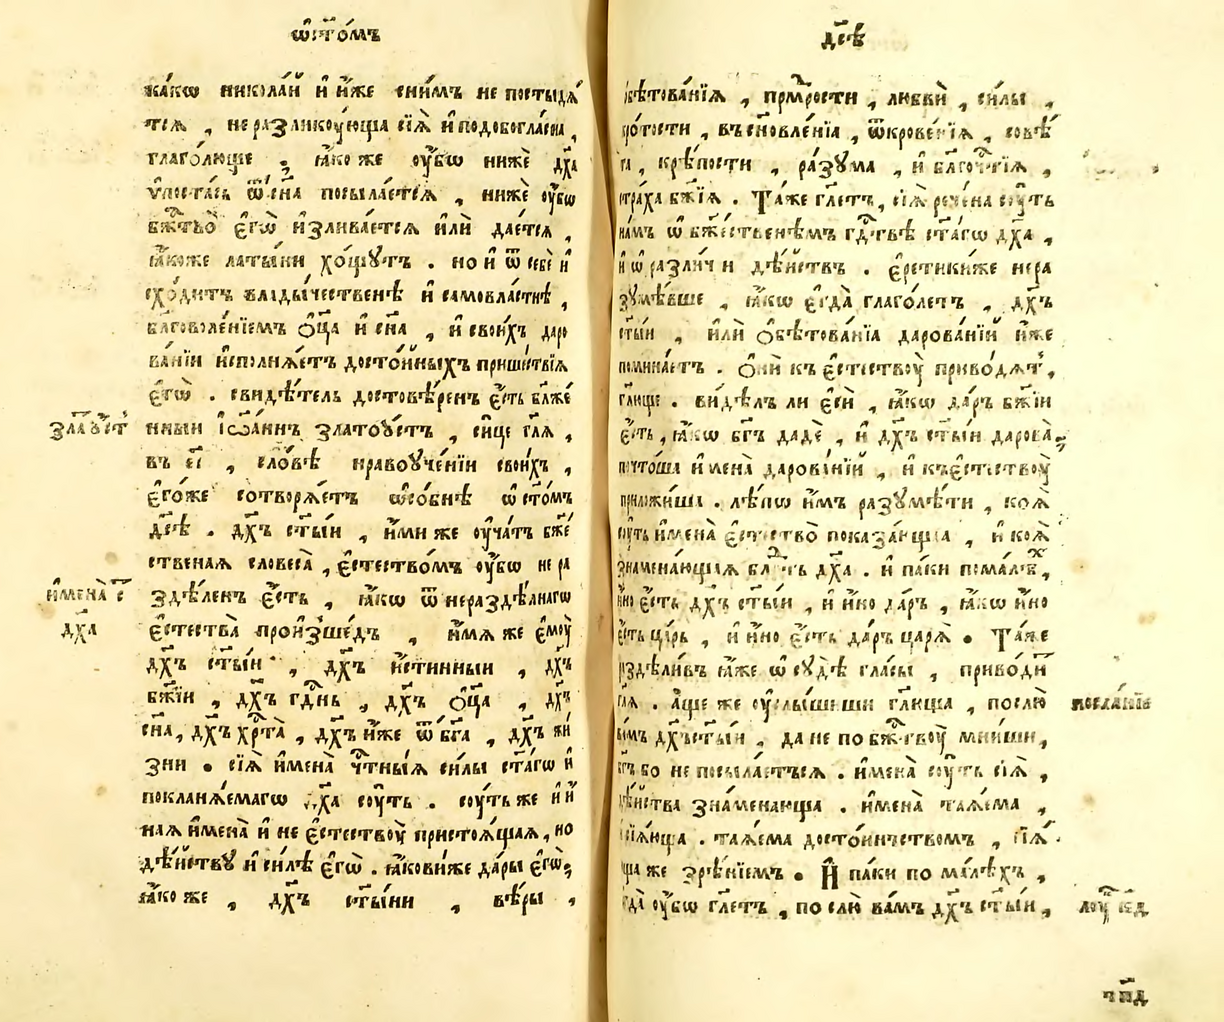 ѡ҆ ст҃о́мъ
ка́кѡ никола́й и҆ и҆́же сни́мъ не постыдѧ́
тсѧ , не разликоу́юща сїѧ̀ и҆ подобогла́сна ,
глаго́люще , ꙗ҆́ко же оу҆́бѡ нижѐ дх҃а
ѵ҆поста́сь ѿ сн҃а посыла́етсѧ , нижѐ оу҆́бѡ
бж҃тво̀ є҆гѡ̀ и҆злива́етсѧ и҆лѝ дае́тсѧ ,
ꙗ҆́коже латы́ни хо́щꙋтъ . но и҆ ѿ себѐ и
схо́дитъ влады́чественѣ и҆ самовла́стнѣ ,
бл҃говоле́нїемъ ѻ҆ц҃а и҆ сн҃а , и҆ свои́хъ даро
ва́нїи и҆сполнѧ́етъ досто́йныхъ прише́ствїѧ
є҆гѡ̀ . свидѣ́тель достовѣ́ренъ є҆́сть бл҃же́
нныи і҆ѡа́ннъ златоꙋ́стъ , си́це гл҃ѧ ,
въ є҃і , сло́вѣ нравоꙋче́нїи свои́хъ ,
є҆го́же сотворѧ́етъ ѡ҆со́бнѣ ѡ ст҃о́мъ
дс҃ѣ . дх҃ъ ст҃ы́и , и҆́ми же оу҆ча́тъ бж҃е́
ственаѧ словеса̀ , є҆стество́мъ оу҆́бѡ не ра
здѣ́ленъ є҆́сть , ꙗ҆́кѡ ѿ нераздѣ́лнагѡ
є҆стества̀ произше́дъ , и҆́мѧ же є҆моу̀
дх҃ъ ст҃ы́и , дх҃ъ и҆́стинныи , дх҃ъ
бж҃їи , дх҃ъ гд҃нь , дх҃ъ ѻ҆ц҃а , дх҃ъ
сн҃а , дх҃ъ хр҃та̀ , дх҃ъ и҆́же ѿ бг҃а , дх҃ъ жи́
зни . сїѧ̀ и҆мена̀ чт҃ны́ѧ си́лы ст҃а́гѡ и҆
покланѧ́емагѡ дх҃а соу́ть . соу́ть же и҆ и҆
наѧ и҆мена̀ и҆ не є҆стествоу̀ пристоѧ́щаѧ , но
дѣ́йствꙋ и҆ си́лѣ є҆гѡ̀ . ꙗ҆кови́же да́ры є҆гѡ̀ ;
ꙗ҆́ко же , дх҃ъ ст҃ы́ни , вѣ́ры ,
златоу́ст
и҆мена̀ с҃
дх҃а
дс҃ѣ
ѻ҆бѣтова́нїѧ , прм҃рости , любвѝ , си́лы ,
кро́тости , въсн҃овле́нїа , ѿкрове́нїѧ , совѣ́
та , крѣ́пости , ра́зꙋма , и҆ бл҃гоче́тїѧ ,
стра́ха бж҃їѧ . Та́же гл҃етъ , сїѧ̀ рече́на соу́ть
на́мъ ѡ бж҃е́ственѣмъ гдⷭ҇твѣ ст҃а́гѡ дх҃а ,
и҆ ѡ разли́чїи дѣ́йствъ . є҆ретики́же нера
зꙋмѣ́вше , ꙗ҆́кѡ є҆гда̀ глаго́летъ , дх҃ъ
ст҃ы́и , и҆лѝ ѻ҆бѣтова́нїа дарова́нїй и҆́же
помина́етъ . ѻ҆нѝ къ є҆стествоу̀ приво́дѧт ,
гл҃юще . ви́дѣлъ ли є҆сѝ , ꙗ҆́кѡ да́ръ бж҃їи
є҆́сть , ꙗ҆́кѡ бг҃ъ дадѐ , и҆ дх҃ъ ст҃ы́и дарова̀ ;
почто́ша и҆мена̀ дарова́нїй , и҆ къ є҆стествоу̀
приложи́ша . лѣ́пѡ и҆̀мъ разꙋмѣ́ти , коѧ̀
соу́ть и҆мена̀ є҆стество̀ показа́ющаа , и҆ коѧ̀
знаменаю́щаѧ бл҃гть дх҃а . и҆ па́ки пома́лѣⷯ ,
и҆́но є҆́сть дх҃ъ ст҃ы́и , и҆ и҆́но да́ръ , ꙗ҆́кѡ и҆́но
є҆́сть ца́рь , и҆ и҆́но є҆́сть да́ръ царѧ̀ . Та́же
раздѣли́въ ꙗ҆́же ѡ сꙋдѣ̀ гла́сы , приво́ди
гл҃ѧ . а҆́ще же оу҆слы́шиши гл҃юща , послю̀
ва́мъ дх҃ъ ст҃ы́и , да не по бж҃твоу̀ мни́ши ,
бг҃ъ бо не посыла́етъсѧ . и҆мена̀ соу́ть сїѧ̀ ,
дѣ́йства зна́менающа . и҆мена̀ таѧ́ема ,
сїѧ́юща . таѧ́ема досто́инством , сїѧ́
ща же зрѣ́нїемъ . И҆ па́ки по ма́лѣхъ ,
є҆гда̀ оу҆́бѡ гл҃етъ , по слю̀ ва́мъ дх҃ъ ст҃ы́и ,
посла́нїе
лоу҃ к҃д
ч҃п҃д